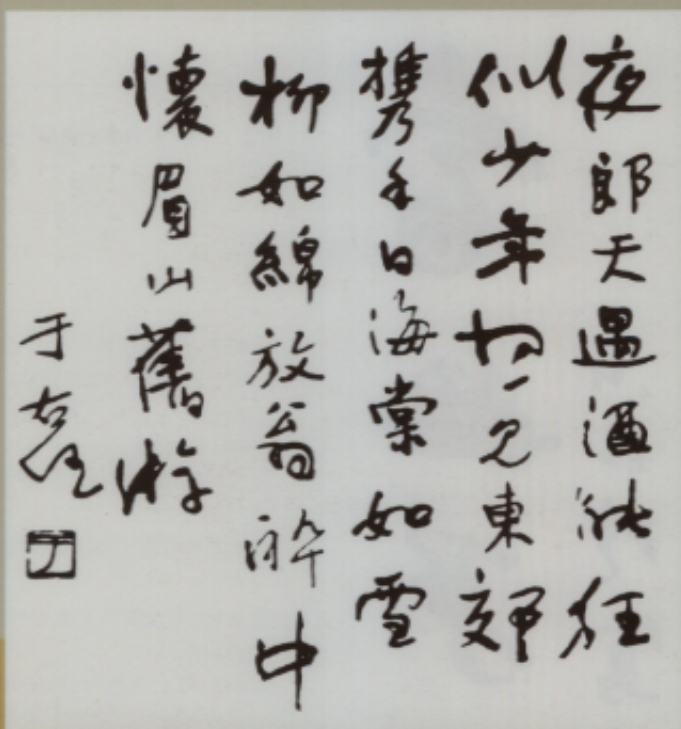 夜郎天遇酒能狂
似少年想見東郊
携手日海棠如雪
柳如綿放翁醉中
懷眉山舊游
于右任